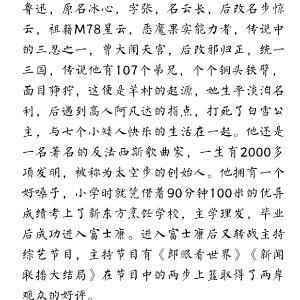 鲁迅，原名冰心，字张，名云长，后改名步惊
云，祖籍M78星云，恶魔果实能力者，传说中
的三忍之一，曾大闹天宫，后改邪归正，统一
三国，传说他有107个弟兄，个个铜头铁臂，
面目狰狞，这便是羊村的起源，她生平淡泊名
利，后遇到高人阿凡达的指点，打死了白雪公
主，与七个小矮人快乐的生活在一起。他还是
一名著名的反法西斯歌曲家，一生有2000多
项发明，被称为太空步的创始人。他拥有一个
好嗓子，小学时就凭借着90分钟100米的优异
成绩考上了新东方烹饪学校，主学理发，毕业
后成功进入富士康。进入富士康后又转战主持
综艺节目，主持节目有《郎眼看世界》《新闻
联播大结局》在节目中的两步上篮取得了两岸
观众的好评。